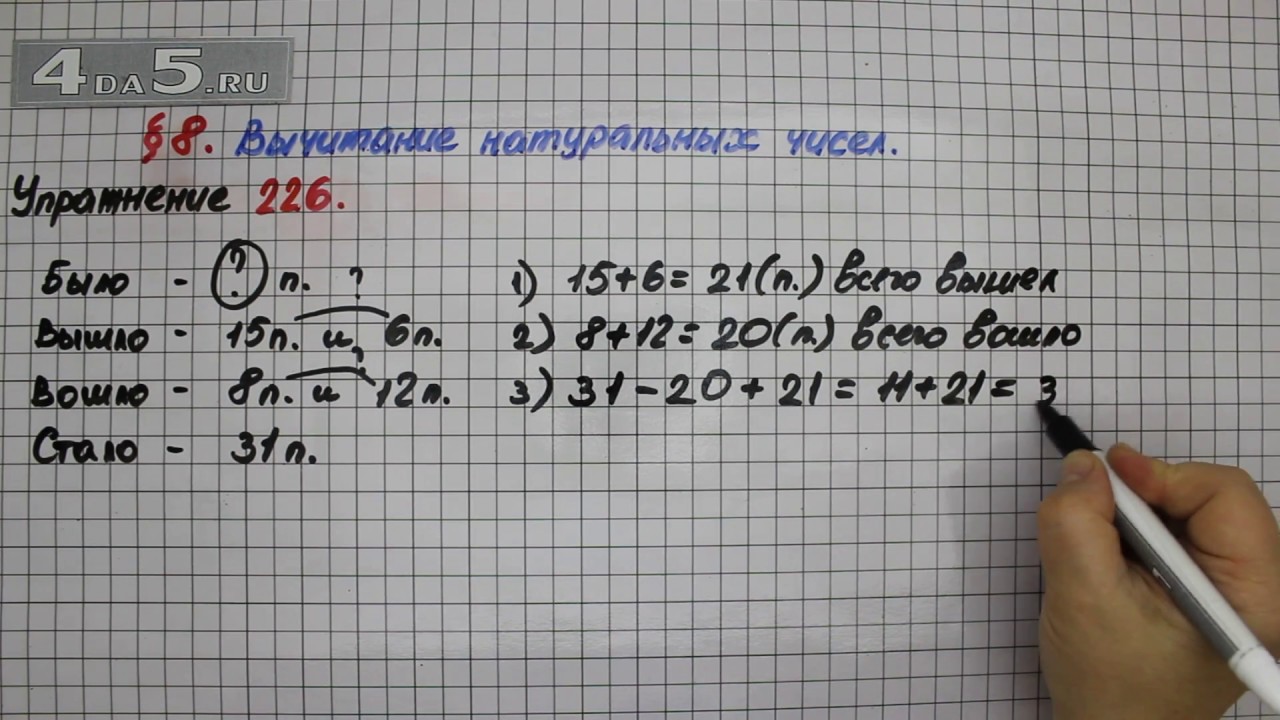 4DA5.RU
§8. Вычитание натуральных чисел.
Упражнение 226.
Было - ? п. ?
Вышло - 15п. и 6п.
?
Вошло - 8п. и 12п.
Стало - 31п.
1) 15+6= 21(п.) всего вышел
2) 8+12= 20(п.) всего вошло
3) 31-20+21= 11+21= 3